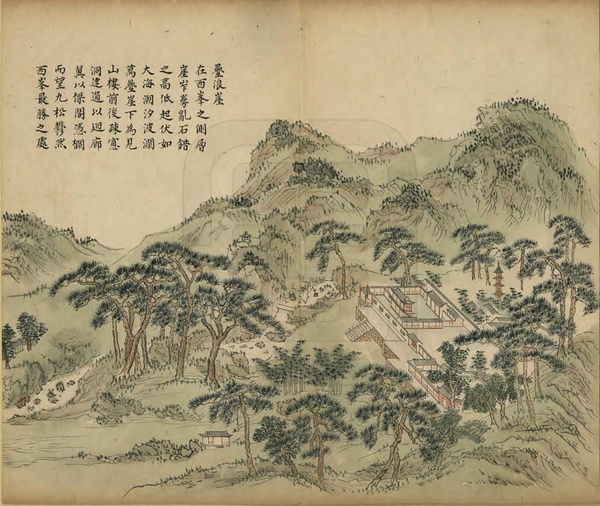 疊浪崖
在西峯之側層
崖岝崿亂石錯
之高低起伏如
大海潮汐波瀾
萬疊崖下為見
山樓前後疎窻
洞達週以迴廊
翼以傑閣憑欄
而望九松鬱然
西峯最勝之處